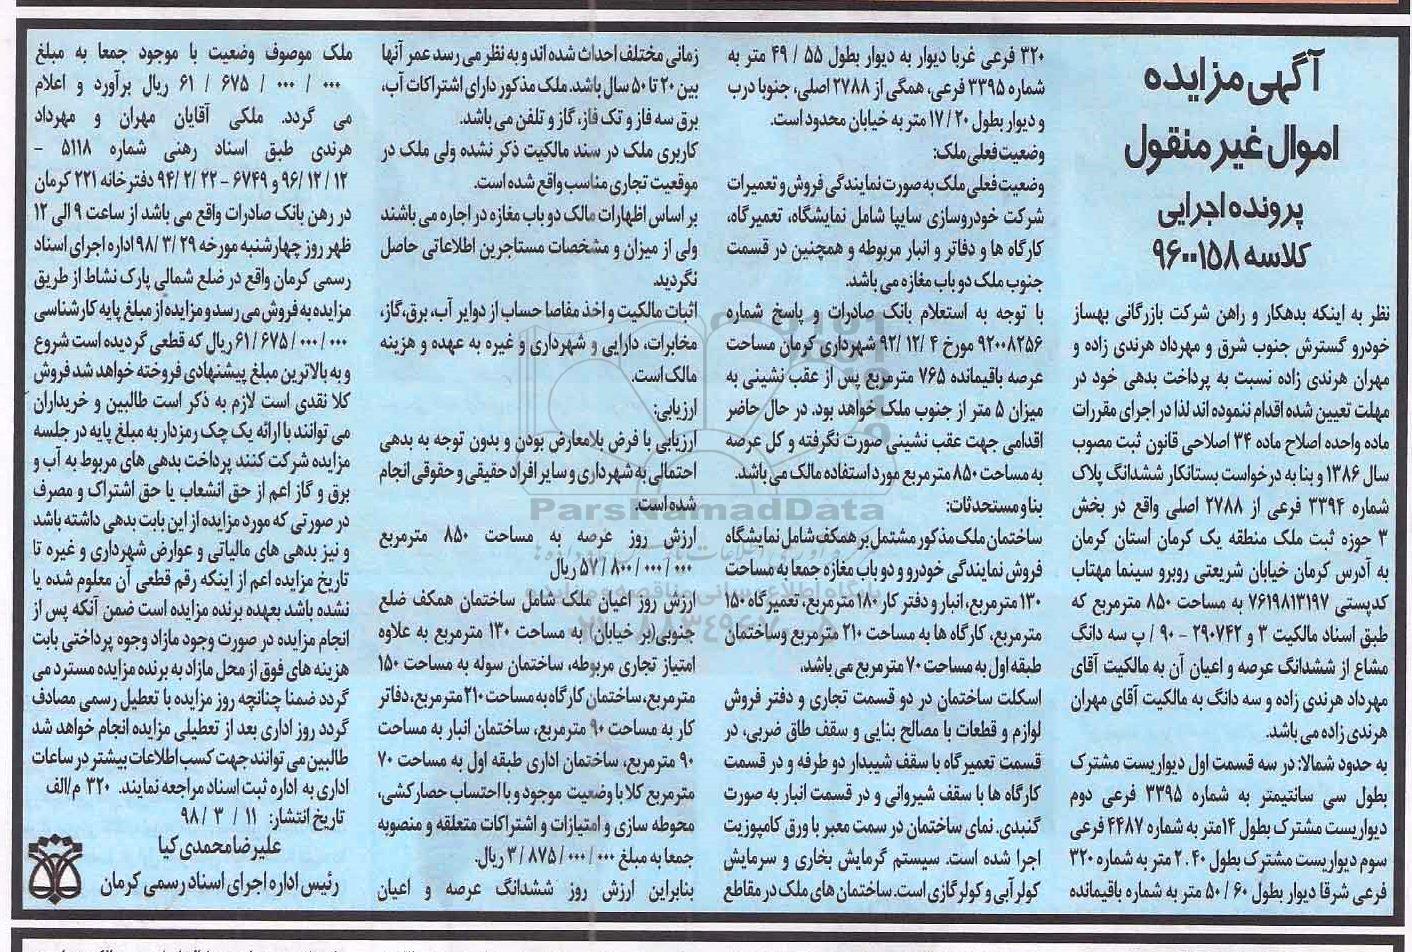 آگهی مزایده
اموال غیر منقول
پرونده اجرایی
کلاسه ۹۶۰۰۱۵۸
نظر به اینکه بدهکار و راهن شرکت بازرگانی بهساز
خودرو گسترش جنوب شرق و مهرداد هرندی زاده و
مهران هرندی زاده نسبت به پرداخت بدهی خود در
مهلت تعیین شده اقدام ننموده اند لذا در اجرای مقررات
ماده واحده اصلاح ماده ۳۴ اصلاحی قانون ثبت مصوب
سال ۱۳۸۶ و بنا به درخواست بستانکار ششدانگ پلاک
شماره ۳۳۹۴ فرعی از ۲۷۸۸ اصلی واقع در بخش
۳ حوزه ثبت ملک منطقه یک کرمان استان کرمان
به آدرس کرمان خیابان شریعتی روبرو سینما مهتاب
کدپستی ۷۶۱۹۸۱۳۱۹۷ به مساحت ۸۵۰ مترمربع که
طبق اسناد مالکیت ۳ و ۲۹۰۷۴۲ - ۹۰ / پ سه دانگ
مشاع از ششدانگ عرصه و اعیان آن به مالکیت آقای
مهرداد هرندی زاده و سه دانگ به مالکیت آقای مهران
هرندی زاده می باشد.
به حدود شمالا: در سه قسمت اول دیواریست مشترک
بطول سی سانتیمتر به شماره ۳۳۹۵ فرعی دوم
دیواریست مشترک بطول ۱۴متر به شماره ۴۴۸۷ فرعی
سوم دیواریست مشترک بطول ۲.۴۰ متر به شماره ۳۲۰
فرعی شرقا دیوار بطول ۶۰ / ۵۰ متر به شماره باقیمانده
۳۲۰ فرعی غربا دیوار به دیوار بطول ۵۵ / ۴۹ متر به
شماره ۳۳۹۵ فرعی، همگی از ۲۷۸۸ اصلی، جنوبا درب
و دیوار بطول ۲۰ / ۱۷ متر به خیابان محدود است.
وضعیت فعلی ملک:
وضعیت فعلی ملک به صورت نمایندگی فروش و تعمیرات
شرکت خودروسازی سایپا شامل نمایشگاه، تعمیرگاه،
کارگاه ها و دفاتر و انبار مربوطه و همچنین در قسمت
جنوب ملک دو باب مغازه می باشد.
با توجه به استعلام بانک صادرات و پاسخ شماره
۹۲۰۰۸۲۵۶ مورخ ۴ / ۱۲ / ۹۲ شهرداری کرمان مساحت
عرصه باقیمانده ۷۶۵ مترمربع پس از عقب نشینی به
میزان ۵ متر از جنوب ملک خواهد بود. در حال حاضر
اقدامی جهت عقب نشینی صورت نگرفته و کل عرصه
به مساحت ۸۵۰ مترمربع مورد استفاده مالک می باشد.
بنا و مستحدثات:
ساختمان ملک مذکور مشتمل بر همکف شامل نمایشگاه
فروش نمایندگی خودرو و دو باب مغازه جمعا به مساحت
۱۳۰ مترمربع، انبار و دفتر کار ۱۸۰ مترمربع، تعمیرگاه ۱۵۰
مترمربع، کارگاه ها به مساحت ۲۱۰ مترمربع و ساختمان
طبقه اول به مساحت ۷۰ مترمربع می باشد.
اسکلت ساختمان در دو قسمت تجاری و دفتر فروش
لوازم و قطعات با مصالح بنایی و سقف طاق ضربی، در
قسمت تعمیرگاه با سقف شیبدار دو طرفه و در قسمت
کارگاه ها با سقف شیروانی و در قسمت انبار به صورت
گنبدی. نمای ساختمان در سمت معبر با ورق کامپوزیت
اجرا شده است. سیستم گرمایش بخاری و سرمایش
کولر آبی و کولر گازی است. ساختمان های ملک در مقاطع
زمانی مختلف احداث شده اند و به نظر می رسد عمر آنها
بین ۲۰ تا ۵۰ سال باشد. ملک مذکور دارای اشتراکات آب،
برق سه فاز و تک فاز، گاز و تلفن می باشد.
کاربری ملک در سند مالکیت ذکر نشده ولی ملک در
موقعیت تجاری مناسب واقع شده است.
بر اساس اظهارات مالک دو باب مغازه در اجاره می باشند
ولی از میزان و مشخصات مستاجرین اطلاعاتی حاصل
نگردید.
اثبات مالکیت و اخذ مفاصا حساب از دوایر آب، برق، گاز،
مخابرات، دارایی و شهرداری و غیره به عهده و هزینه
مالک است.
ارزیابی:
ارزیابی با فرض بلامعارض بودن و بدون توجه به بدهی
احتمالی به شهرداری و سایر افراد حقیقی و حقوقی انجام
شده است.
ارزش روز عرصه به مساحت ۸۵۰ مترمربع
۰۰۰ / ۰۰۰ / ۸۰۰ / ۵۷ ریال
ارزش روز اعیان ملک شامل ساختمان همکف ضلع
جنوبی(بر خیابان) به مساحت ۱۳۰ مترمربع به علاوه
امتیاز تجاری مربوطه، ساختمان سوله به مساحت ۱۵۰
مترمربع، ساختمان کارگاه به مساحت ۲۱۰ مترمربع، دفاتر
کار به مساحت ۹۰ مترمربع، ساختمان انبار به مساحت
۹۰ مترمربع، ساختمان اداری طبقه اول به مساحت ۷۰
مترمربع کلا با وضعیت موجود و با احتساب حصارکشی،
محوطه سازی و امتیازات و اشتراکات متعلقه و منصوبه
جمعا به مبلغ ۰۰۰ / ۰۰۰ / ۸۷۵ / ۳ ریال.
بنابراین ارزش روز ششدانگ عرصه و اعیان
ملک موصوف وضعیت با موجود جمعا به مبلغ
۰۰۰ / ۰۰۰ / ۶۷۵ / ۶۱ ریال برآورد و اعلام
می گردد. ملکی آقایان مهران و مهرداد
هرندی طبق اسناد رهنی شماره ۵۱۱۸ -
۱۲ / ۱۲ / ۹۶ و ۶۷۴۹ - ۲۲ / ۲ / ۹۴ دفترخانه ۲۲۱ کرمان
در رهن بانک صادرات واقع می باشد از ساعت ۹ الی ۱۲
ظهر روز چهارشنبه مورخه ۲۹ / ۳ / ۹۸ اداره اجرای اسناد
رسمی کرمان واقع در ضلع شمالی پارک نشاط از طریق
مزایده به فروش می رسد و مزایده از مبلغ پایه کارشناسی
۰۰۰ / ۰۰۰ / ۶۷۵ / ۶۱ ریال که قطعی گردیده است شروع
و به بالاترین مبلغ پیشنهادی فروخته خواهد شد فروش
کلا نقدی است لازم به ذکر است طالبین و خریداران
می توانند با ارائه یک چک رمزدار به مبلغ پایه در جلسه
مزایده شرکت کنند پرداخت بدهی های مربوط به آب و
برق و گاز اعم از حق انشعاب یا حق اشتراک و مصرف
در صورتی که مورد مزایده از این بابت بدهی داشته باشد
و نیز بدهی های مالیاتی و عوارض شهرداری و غیره تا
تاریخ مزایده اعم از اینکه رقم قطعی آن معلوم شده یا
نشده باشد بعهده برنده مزایده است ضمن آنکه پس از
انجام مزایده در صورت وجود مازاد وجوه پرداختی بابت
هزینه های فوق از محل مازاد به برنده مزایده مسترد می
گردد ضمنا چنانچه روز مزایده با تعطیل رسمی مصادف
گردد روز اداری بعد از تعطیلی مزایده انجام خواهد شد
طالبین می توانند جهت کسب اطلاعات بیشتر در ساعات
اداری به اداره ثبت اسناد مراجعه نمایند. ۳۲۰ م/الف
تاریخ انتشار: ۱۱ / ۳ / ۹۸
علیرضا محمدی کیا
رئیس اداره اجرای اسناد رسمی کرمان
ParsNamadData